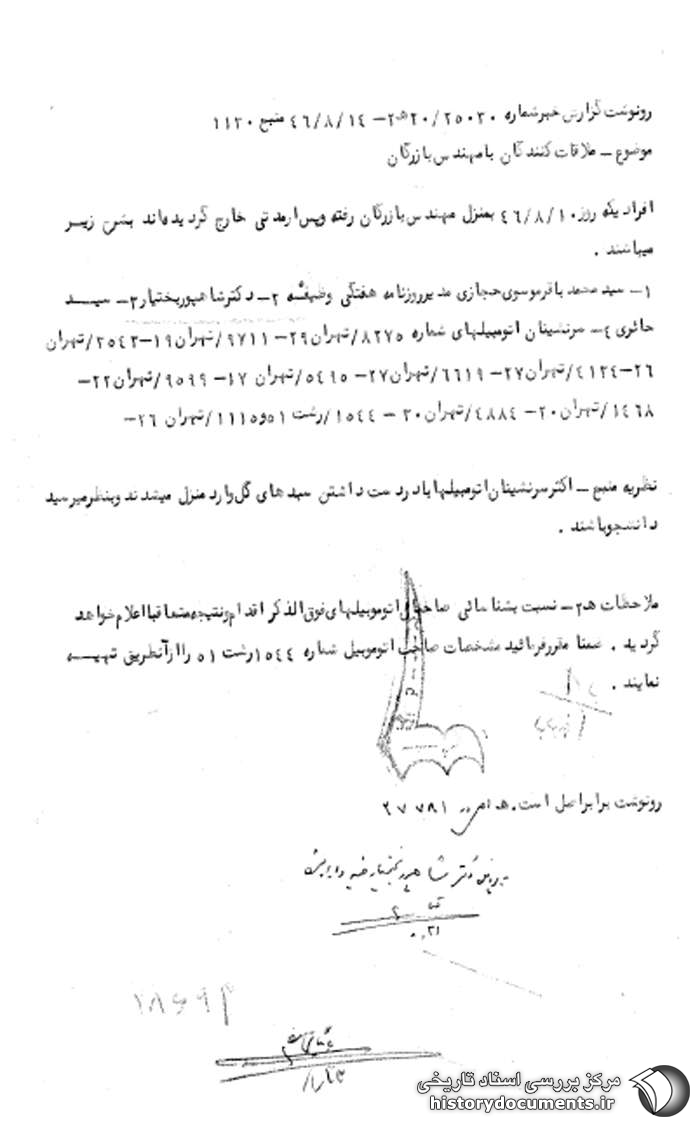 رونوشت گزارش خبر شماره ۲۵۰۳۰/۲۰ه۲- ۴۶/۸/۱۴ منبع ۱۱۳۰
موضوع – ملاقات کنندگان با مهندس بازرگان
افرادیکه روز ۴۶/۸/۱۰ بمنزل مهندس بازرگان رفته و پس از مدتی خارج گردیده‌اند بشرح زیر
میباشند .
۱- سید محمد باقر موسوی حجازی مدیر روزنامه هفتگی وظیفه ۲- دکتر شاهپور بختیار ۳- سید
حائری ۴- سرنشینان اتومبیلهای شماره ۸۲۷۵/تهران ۲۹- ۹۷۱۱/تهران ۱۹-۲۵۴۳/تهران
۲۶-۴۱۲۴/تهران ۲۷- ۶۶۱۹/تهران ۲۷- ۵۴۹۵/تهران ۱۷- ۹۵۹۹/تهران ۲۲-
۱۴۶۸/تهران ۲۰- ۴۸۸۴/تهران ۲۰ - ۱۵۴۴/رشت ۵۱ و ۱۱۱۵/تهران ۲۶-
نظریه منبع – اکثر سرنشینان اتومبیلها با در دست داشتن سبدهای گل وارد منزل میشدند و بنظر میرسید
دانشجو باشند .
ملاحظات ه۲ – نسبت بشناسائی صاحبان اتوموبیلهای فوق الذکر اقدام و نتیجه متعاقبا اعلام خواهد
گردید . ضمنا مقرر فرمائید مشخصات صاحب اتوموبیل شماره ۱۵۴۴ رشت ۵۱ را از آنطریق تهیه
نمایند .
رونوشت برابر اصل است.
۲۷۷۸۱
دکتر شاهپور بختیار
مرکز بررسی اسناد تاریخی
historydocuments.ir